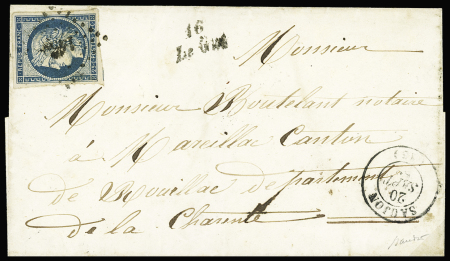 16
Le Gua
Monsieur
Monsieur Boutelant notaire
à Mareillac Canton
de Rouillac departement
de la Charente
SAUJON
20